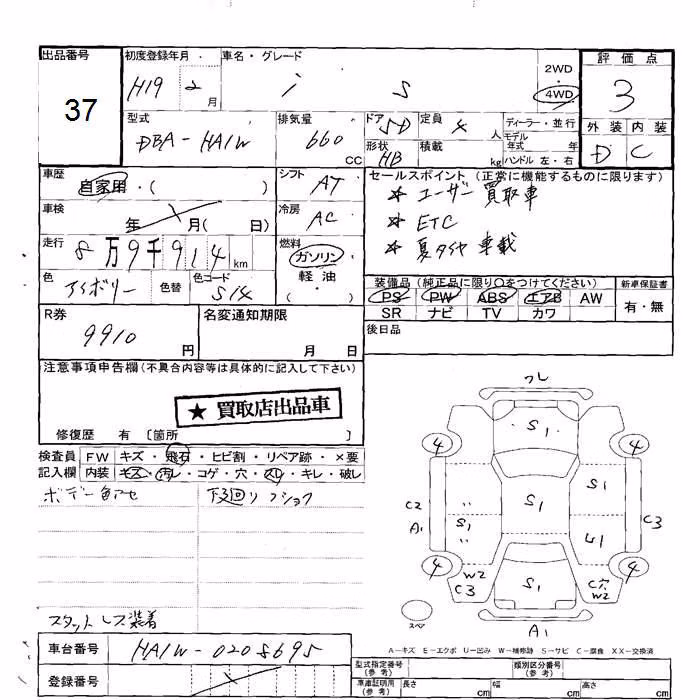 出品番号
37
初度登録年月
H19 2 月
車名・グレード
i S
2WD
4WD
評価点
3
外装 内装
D C
型式
DBA-HA1W
排気量
660 CC
ドア
5D
定員
4 人
形状
HB
積載
kg
ディーラー・並行
モデル年式 年
ハンドル 左・右
車歴
自家用・( )
車検
年 月( 日)
シフト
AT
冷房
AC
走行
8万9千914km
燃料
ガソリン
軽油
・
( )
色
アイボリー
色替
色コード
S14
セールスポイント(正常に機能するものに限ります)
☆ ユーザー買取車
☆ ETC
☆ 夏タイヤ車載
装備品(純正品に限り○をつけてください)
PS PW ABS エアB AW
SR ナビ TV カワ
新車保証書
有・無
後日品
R券
9910 円
名変通知期限
月 日
注意事項申告欄(不具合内容等は具体的に記入して下さい)
★ 買取店出品車
修復歴 有 〔箇所 〕
検査員記入欄
FW キズ・飛石・ヒビ割・リペア跡・×要
内装 キズ・汚レ・コゲ・穴・スレ・キレ・破レ
ボデー色アセ
下廻りフショク
スタットレス装着
フレ
S1
4 4
S1
C2
A1
S1
S1
C3
U1
4 4
W2
C3
S1
C穴
W2
スペア
A1
A-キズ E-エクボ U-凹み W-補修跡 S-サビ C-腐食 XX-交換済
車台番号
HA1W-0205695
登録番号
型式指定番号(参考)
類別区分番号(参考)
車庫証明用(参考)
長さ cm 幅 cm 高さ cm